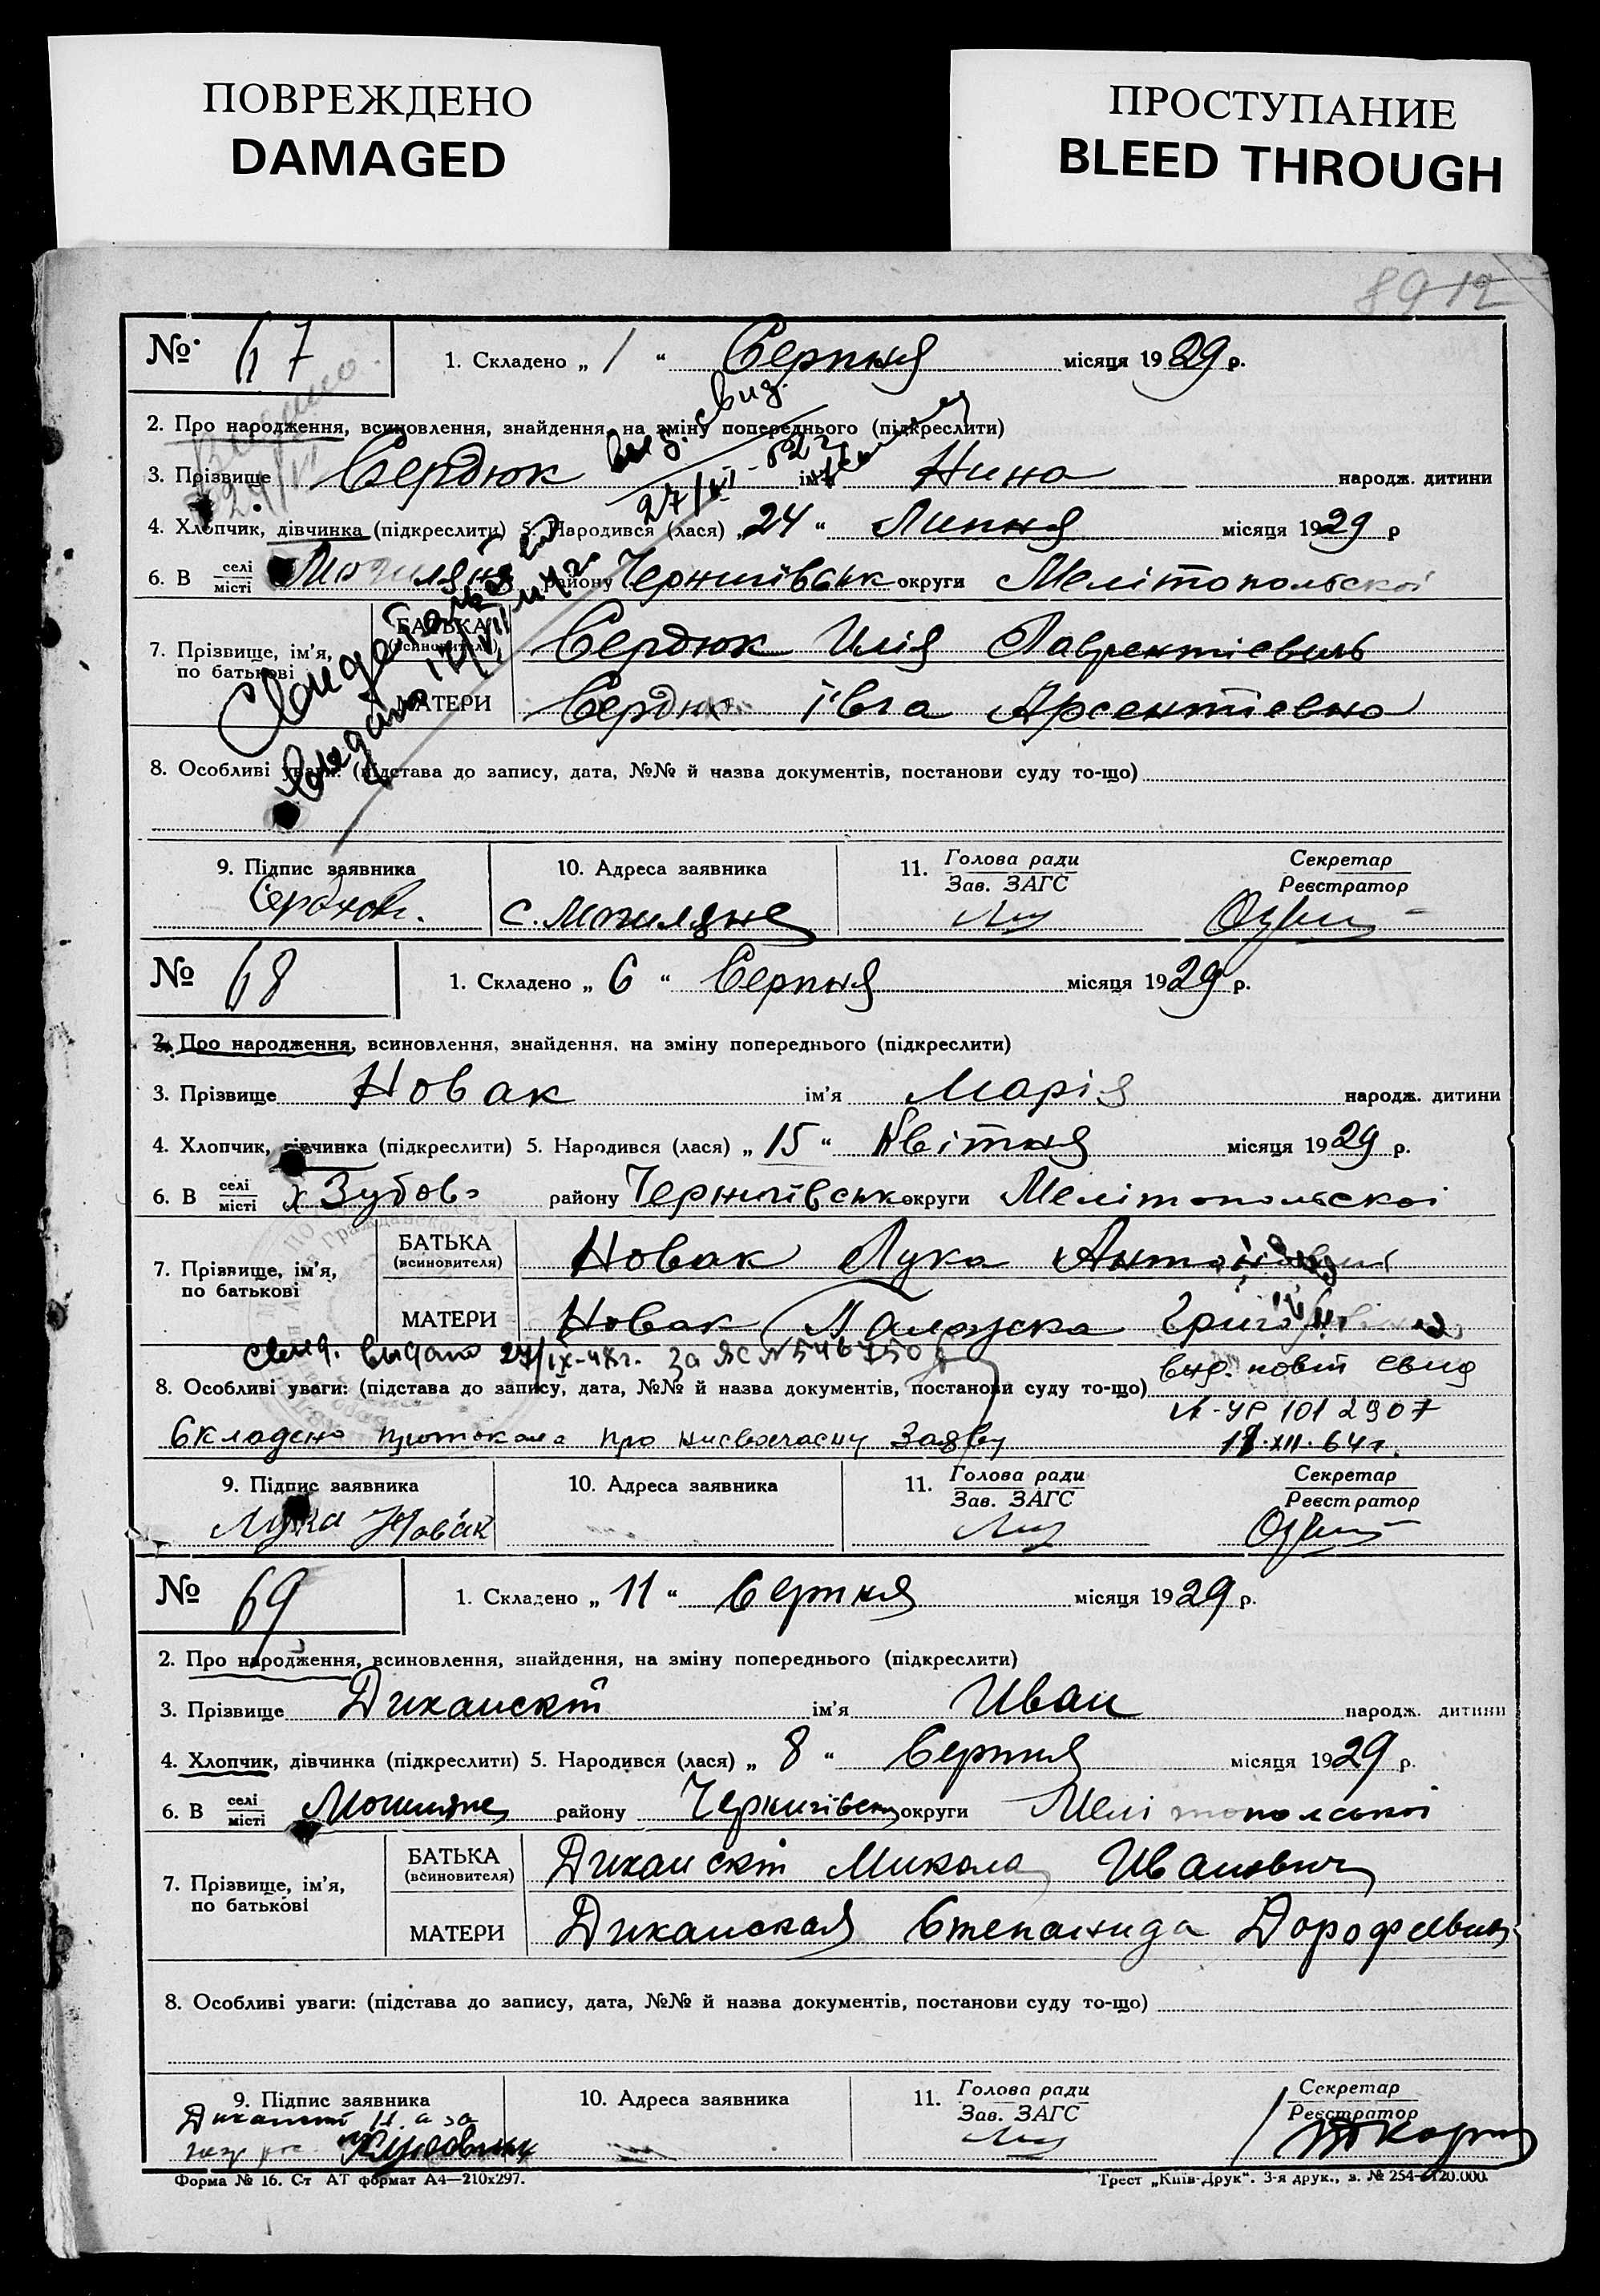 ПОВРЕЖДЕНО
DAMAGED
ПРОСТУПАНИЕ
BLEED THROUGH
89 12
№ 67
1. Складено „ 1 “ Серпня місяця 1929 р.
Видано
2. Про народження, всиновлення, знайдення, на зміну попереднього (підкреслити)
3. Прізвище Сердюк ім'я Нина народж. дитини
27/VI
4. Хлопчик, дівчинка (підкреслити) 5. Народився (лася) „ 24 “ Липня місяця 1929 р
6. В селі місті Могиляне району Чернигівськ округи Мелітопольскоі
7. Прізвище, ім'я, по батькові
БАТЬКА (всиновителя) Сердюк Илія Лаврентіевичь
МАТЕРИ Сердюк Івга Арсентіевна
8. Особливі уваги: (підстава до запису, дата, №№ й назва документів, постанови суду то-що)
9. Підпис заявника
10. Адреса заявника
11. Голова ради
Зав. ЗАГС
Секретар
Реєстратор
с. Могиляне
№ 68
1. Складено „ 6 “ Серпня місяця 1929 р.
2. Про народження, всиновлення, знайдення, на зміну попереднього (підкреслити)
3. Прізвище Новак ім'я Марія народж. дитини
4. Хлопчик, дівчинка (підкреслити) 5. Народився (лася) „ 15 “ Квітня місяця 1929 р.
6. В селі місті х Зубово району Чернигівськ округи Мелітопольскоі
7. Прізвище, ім'я, по батькові
БАТЬКА (всиновителя) Новак Лука
МАТЕРИ Новак
свид. выдано 27/IX-48г. за ЯС №
8. Особливі уваги: (підстава до запису, дата, №№ й назва документів, постанови суду то-що) вид. повт свид
УР 1012907
Складено протокола про нисвоєчасну Заяву 18.XII.64г.
9. Підпис заявника
10. Адреса заявника
11. Голова ради
Зав. ЗАГС
Секретар
Реєстратор
Лука Новак
№ 69
1. Складено „ 11 “ Серпня місяця 1929 р.
2. Про народження, всиновлення, знайдення, на зміну попереднього (підкреслити)
3. Прізвище Диканскій ім'я Иван народж. дитини
4. Хлопчик, дівчинка (підкреслити) 5. Народився (лася) „ 8 “ Серпня місяця 1929 р.
6. В селі місті Могиляне району Чернигівськ округи Мелітопольскоі
7. Прізвище, ім'я, по батькові
БАТЬКА (всиновителя) Диканскій Микола Иванович
МАТЕРИ Диканская Степанида
8. Особливі уваги: (підстава до запису, дата, №№ й назва документів, постанови суду то-що)
9. Підпис заявника
10. Адреса заявника
11. Голова ради
Зав. ЗАГС
Секретар
Реєстратор
Форма № 16. Ст АТ формат А4—210х297.
Трест „Київ-Друк“. 3-я друк., з. № 254—120.000.